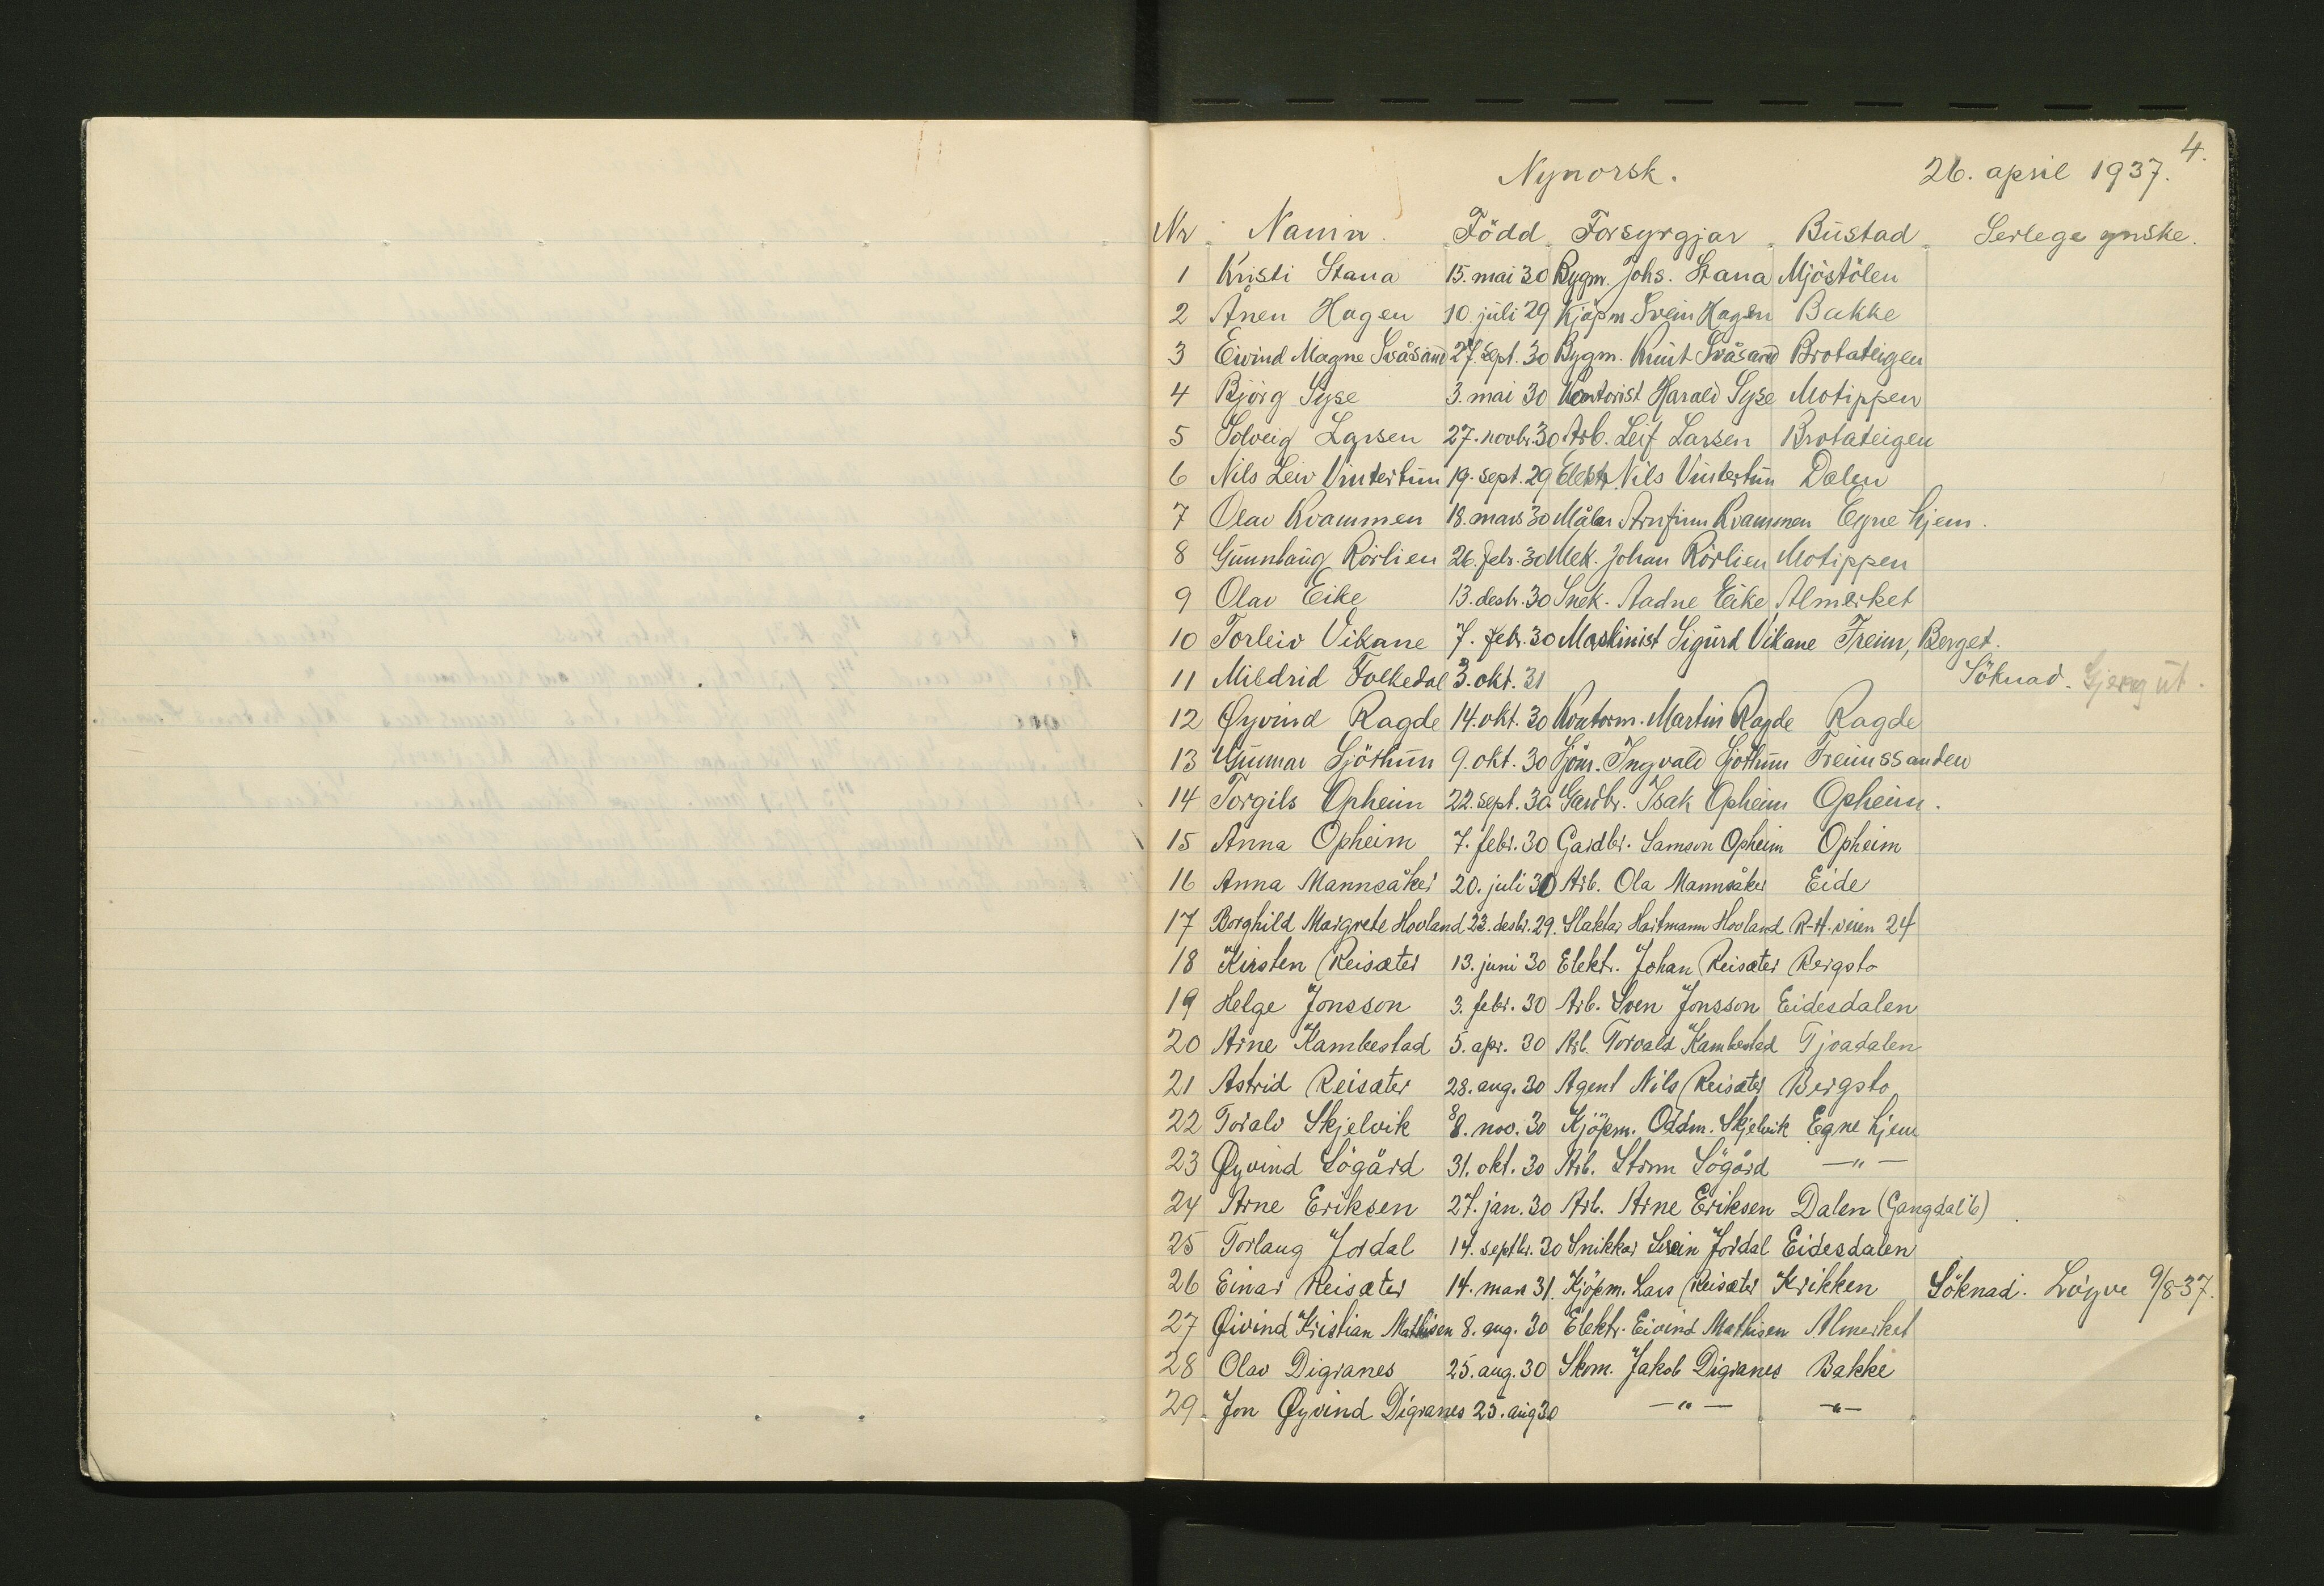 4.
Nynorsk. 26. april 1937.
Nr Namn Född Forsyrgjar Bustad Serlege ynske.
1 Kristi Stana 15. mai 30 Bygm. Johs. Stana Mjöstölen
2 Ånen Hagen 10. juli 29 Kjöpm Svein Hagen Bakke
3 Eivind Magne Svåsand 27. sept. 30 Bygm. Knut Svåsand Brotateigen
4 Björg Syse 3. mai 30 Kontorist Harald Syse Motippen
5 Solveig Larsen 27. novbr. 30 Arb. Leif Larsen Brotateigen
6 Nils Leiv Vintertun 19. sept. 29 Elektr Nils Vintertun Dalen
7 Olav Kvammen 18. mars 30 Målar Arnfinn Kvammen Egne hjem.
8 Gunnlaug Rörlien 26. febr. 30 Mek. Johan Rörlien Motippen
9 Olav Eike 13. desbr. 30 Snek. Aadne Eike Almerket
10 Torleiv Vikane 7. febr. 30 Maskinist Sigurd Vikane Freim, Berget.
11 Mildrid Folkedal 3. okt. 31 Söknad. Gjeng ut.
12 Øyvind Ragde 14. okt. 30 Kontorm. Martin Ragde Ragde
13 Gunnar Sjöthun 9. okt. 30 Sjöm. Ingvald Sjöthun Freimssanden
14 Torgils Opheim 22. sept. 30 Gardbr. Isak Opheim Opheim.
15 Anna Opheim 7. febr. 30 Gardbr. Samson Opheim Opheim
16 Anna Mannsåker 20. juli 30 Arb. Ola Mannsåker Eide
17 Borghild Margrete Hovland 23. desbr. 29. Slaktar Hartmann Hovland R-H. veien 24
18 Kirsten Reisæter 13. juni 30 Elektr. Johan Reisæter Bergsto
19 Helge Jonsson 3. febr. 30 Arb. Sven Jonsson Eidesdalen
20 Arne Kambestad 5. apr. 30 Arb. Torvald Kambestad Tjoadalen
21 Astrid Reisæter 28. aug. 30 Agent Nils Reisæter Bergsto
22 Toralv Skjelvik 8. nov. 30 Kjöpm. Oddm. Skjelvik Egne hjem
23 Øyvind Sögård 31. okt. 30 Arb. Sögård —"—
24 Arne Eriksen 27. jan. 30 Arb. Arne Eriksen Dalen (Gangdal 6)
25 Torlaug Jordal 14. septbr. 30 Snikkar Svein Jordal Eidesdalen
26 Einar Reisæter 14. mars 31. Kjöpm. Lars Reisæter Krikken Söknad. Löyve 9/8-37.
27 Øivind Kristian Mathisen 8. aug. 30 Elektr. Eivind Mathisen Almerket
28 Olav Digranes 25. aug. 30 Skom. Jakob Digranes Bakke
29 Jon Øyvind Digranes 25. aug 30 —"— —"—